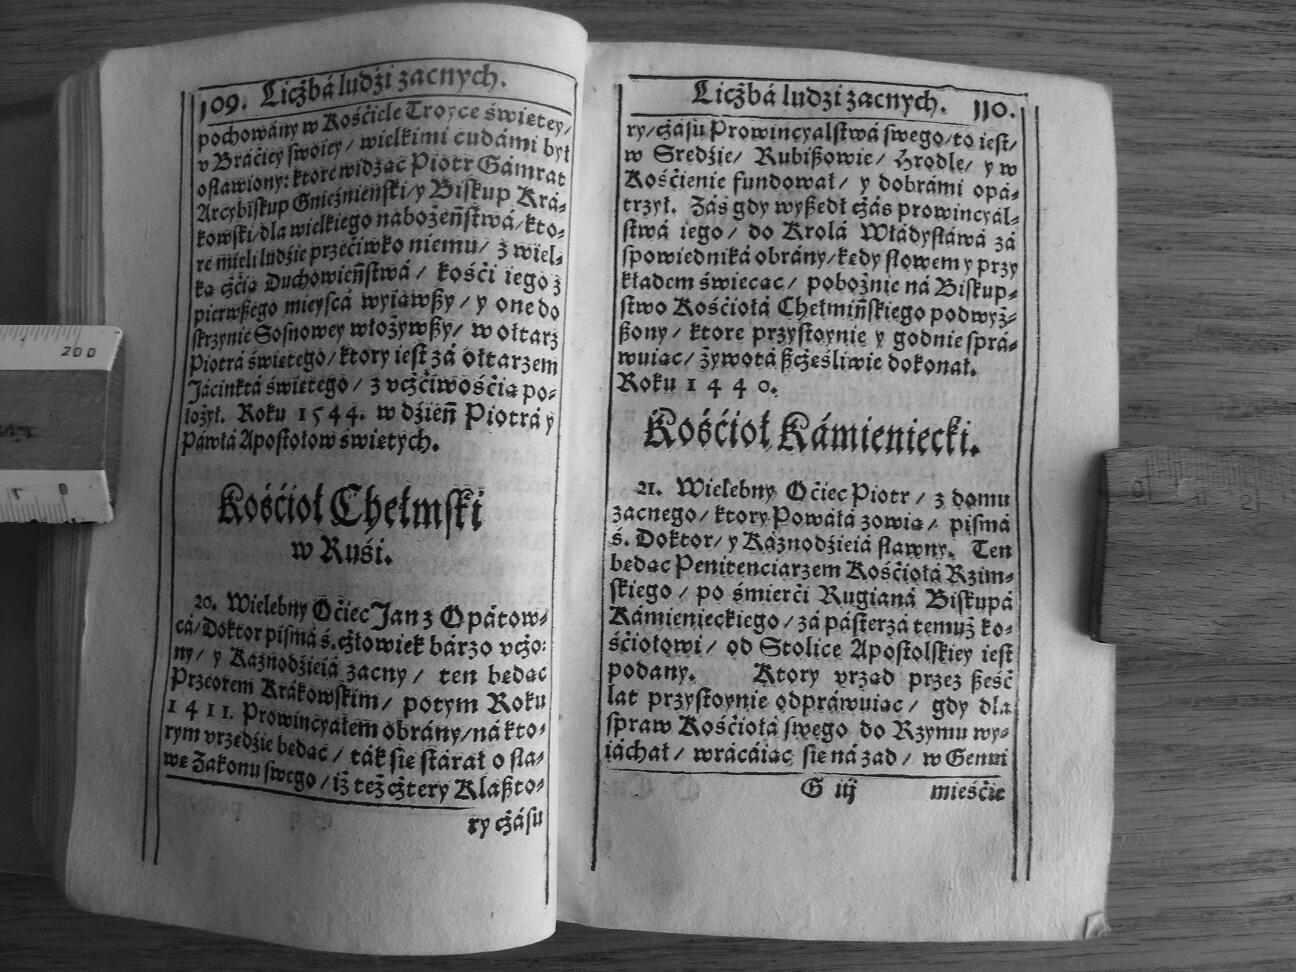 109. Licżbá ludźi zacnych.
pochowány w Kośćiele Troyce świetey/
v Bráciey swoiey / wielkimi cudámi był
osławiony: ktore widząc Piotr Gámrat
Arcybiskup Gnieźnieński/ y Biskup Krá-
kowski/ dla wielkiego nabożeństwá/ kto-
re mieli ludzie przećiwko niemu/ z wiel-
ką cżćią Duchowieństwá / kośći iego z
pierwßego mieyscá wyiąwßy / y one do
skrzynie Sosnowey włożywßy/ w ołtarz
Piotrá świetego/ ktory iest zá ołtarzem
Jácinktá świetego / z vcżćiwośćią po-
łożył. Roku 1544. w dźień Piotrá y
Páwłá Apostołow świetych.
Kośćioł Chełmski
w Ruśi.
20. Wielebny Oćiec Jan z Opátow-
cá/ Doktor pismá ś. cżłowiek bárzo vcżo-
ny/ y Káznodźieiá zacny / ten bedąc
Przeorem Krákowskim/ potym Roku
1411. Prowincyałem obrány/ ná kto-
rym vrzedźie bedąc / ták sie stárał o sła-
we Zakonu swego / iż też cżtery Klaßto-
ry cżásu
Licżbá ludzi zacnych. 110.
ry/ cżásu Prowincyalstwá swego/ to iest/
w Sredźie/ Rubißowie/ Hrodle/ y w
Kośćienie fundował/ y dobrámi opá-
trzył. Záś gdy wyßedł cżás prowincyal-
stwá iego/ do Krolá Włádysłáwá zá
spowiedniká obrány/ kedy słowem y przy
kładem świecąc/ pobożnie ná Biskup-
stwo Kośćiołá Chełmińskiego podwyż-
ßony/ ktore przystoynie y godnie sprá-
wuiąc/ żywotá ßcżeśliwie dokonał.
Roku 1440.
Kośćioł Kámieniecki.
21. Wielebny Oćiec Piotr / z domu
zacnego/ ktory Powáłá zowią/ pismá
ś. Doktor/ y Káznodźieiá sławny. Ten
bedąc Penitenciarzem Kośćiołá Rzim-
skiego / po śmierći Rugianá Biskupá
Kámienieckiego / zá pásterzá temuż ko-
śćiołowi/ od Stolice Apostolskiey iest
podány. Ktory vrząd przez ßeść
lat przystoynie odpráwuiąc/ gdy dla
spraw Kośćiołá swego do Rzymu wy-
iáchał/ wrácáiąc sie ná zad/ w Genui
G iij mieśćie
200